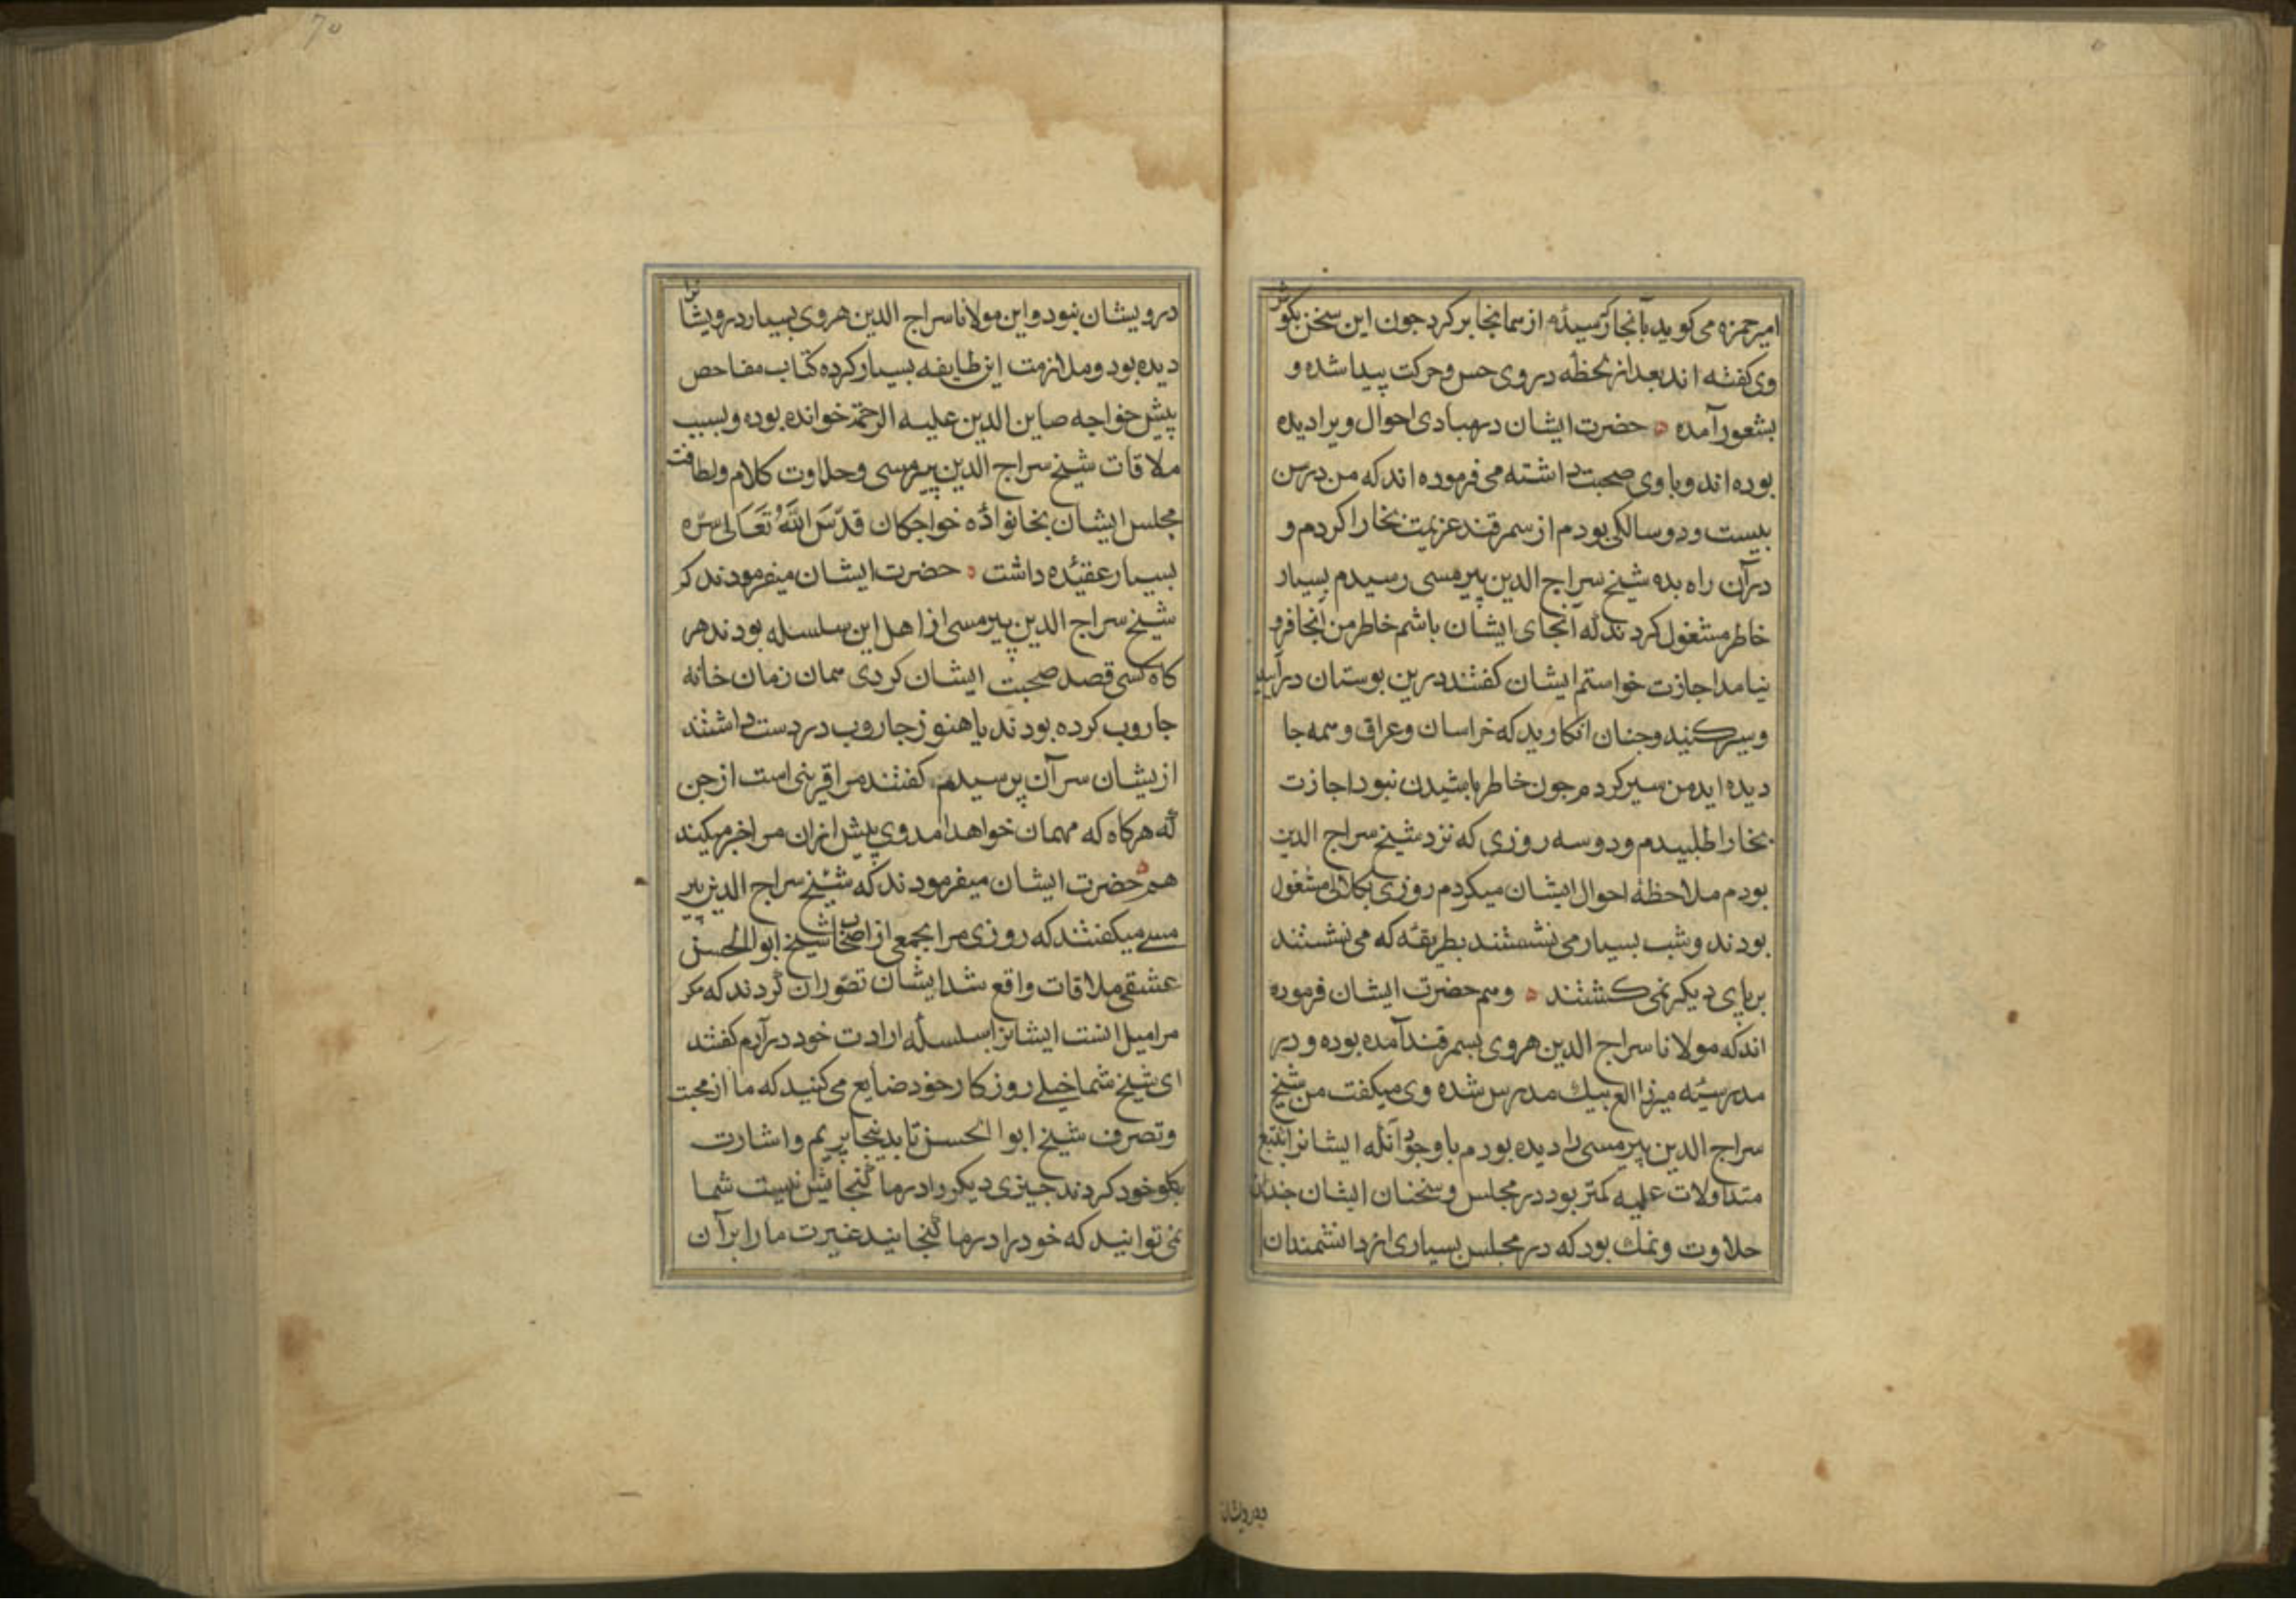 امیر حمزه می کوید بآنجا که رسیدهٔ از سمانجا بر کرد جون این سخن بکوش
وی کفته اند بعد از لحظه در وی حس و حرکت پیدا شده و
بشعور آمده حضرت ایشان در مبادی احوال ویرا دیده
بوده اند و با وی صحبت داشته می فرموده اند که من در سن
بیست و دو سالکی بودم از سمرقند عزیمت بخارا کردم و
در آن راه بده شیخ سراج الدین پیرمسی رسیدم بسیار
خاطر مشغول کردند که آنجای ایشان باشم خاطر من آنجا فرو
نیامد اجازت خواستم ایشان کفتند درین بوستان درآیید
و سیر کنید و جنان انکارید که خراسان و عراق و سمه جا
دیده اید من سیر کردم جون خاطر باشیدن نبود اجازت
بخارا طلبیدم و دو سه روزی که نزد شیخ سراج الدین
بودم ملاحظهٔ احوال ایشان میکردم روزی بکلالی مشغول
بودند و شب بسیار می نشستند بطریقهٔ که می نشستند
بر پای دیکر نمی کشتند و سم حضرت ایشان فرموده
اند که مولانا سراج الدین هروی بسمرقند آمده بوده و در
مدرسهٔ میرزا الغ بیک مدرس شده وی میکفت من شیخ
سراج الدین پیرمسی را دیده بودم با وجود آنکه ایشانرا تتبع
متداولات علمیه کمتر بود در مجلس و سخنان ایشان جندان
حلاوت و نمک بود که در مجلس بسیاری از دانشمندان
ودرویشان
درویشان نبود و این مولانا سراج الدین هروی بسیار درویشانرا
دیده بود و ملازمت این طایفه بسیار کرده کتاب مفاحص
پیش خواجه صاین الدین علیه الرحمة خوانده بوده و بسبب
ملاقات شیخ سراج الدین پیرمسی و حلاوت کلام و لطافت
مجلس ایشان بخانوادهٔ خواجکان قدّس الله تعالی سرّه
بسیار عقیده داشت حضرت ایشان میفرمودند که
شیخ سراج الدین پیرمسی از اهل این سلسله بودند هر
کاه کسی قصد صحبت ایشان کردی سمان زمان خانه
جاروب کرده بودند یا هنوز جاروب در دست داشتند
ازیشان سر آن پرسیدم کفتند مرا قرینی است از جن
که هرکاه که مهمان خواهد آمد وی پیش ازان مرا خبر میکند
هم حضرت ایشان میفرمودند که شیخ سراج الدین پیر
مسی میکفتند که روزی مرا بجمعی از اصحاب شیخ ابو الحسن
عشقی ملاقات واقع شد ایشان تصوّر ان کردند که مکر
مرا میل انست ایشانرا بسلسلهٔ ارادت خود درآرم کفتند
ای شیخ شما خیلی روزکار خود ضایع می کنید که ما از محبت
و تصرف شیخ ابو الحسن تا بدینجا پریم و اشارت
بکلو خود کردند جیزی دیکر را در ما کنجایش نیست شما
نمی توانید که خود را در ما کنجانید غیرت ما را بر آن